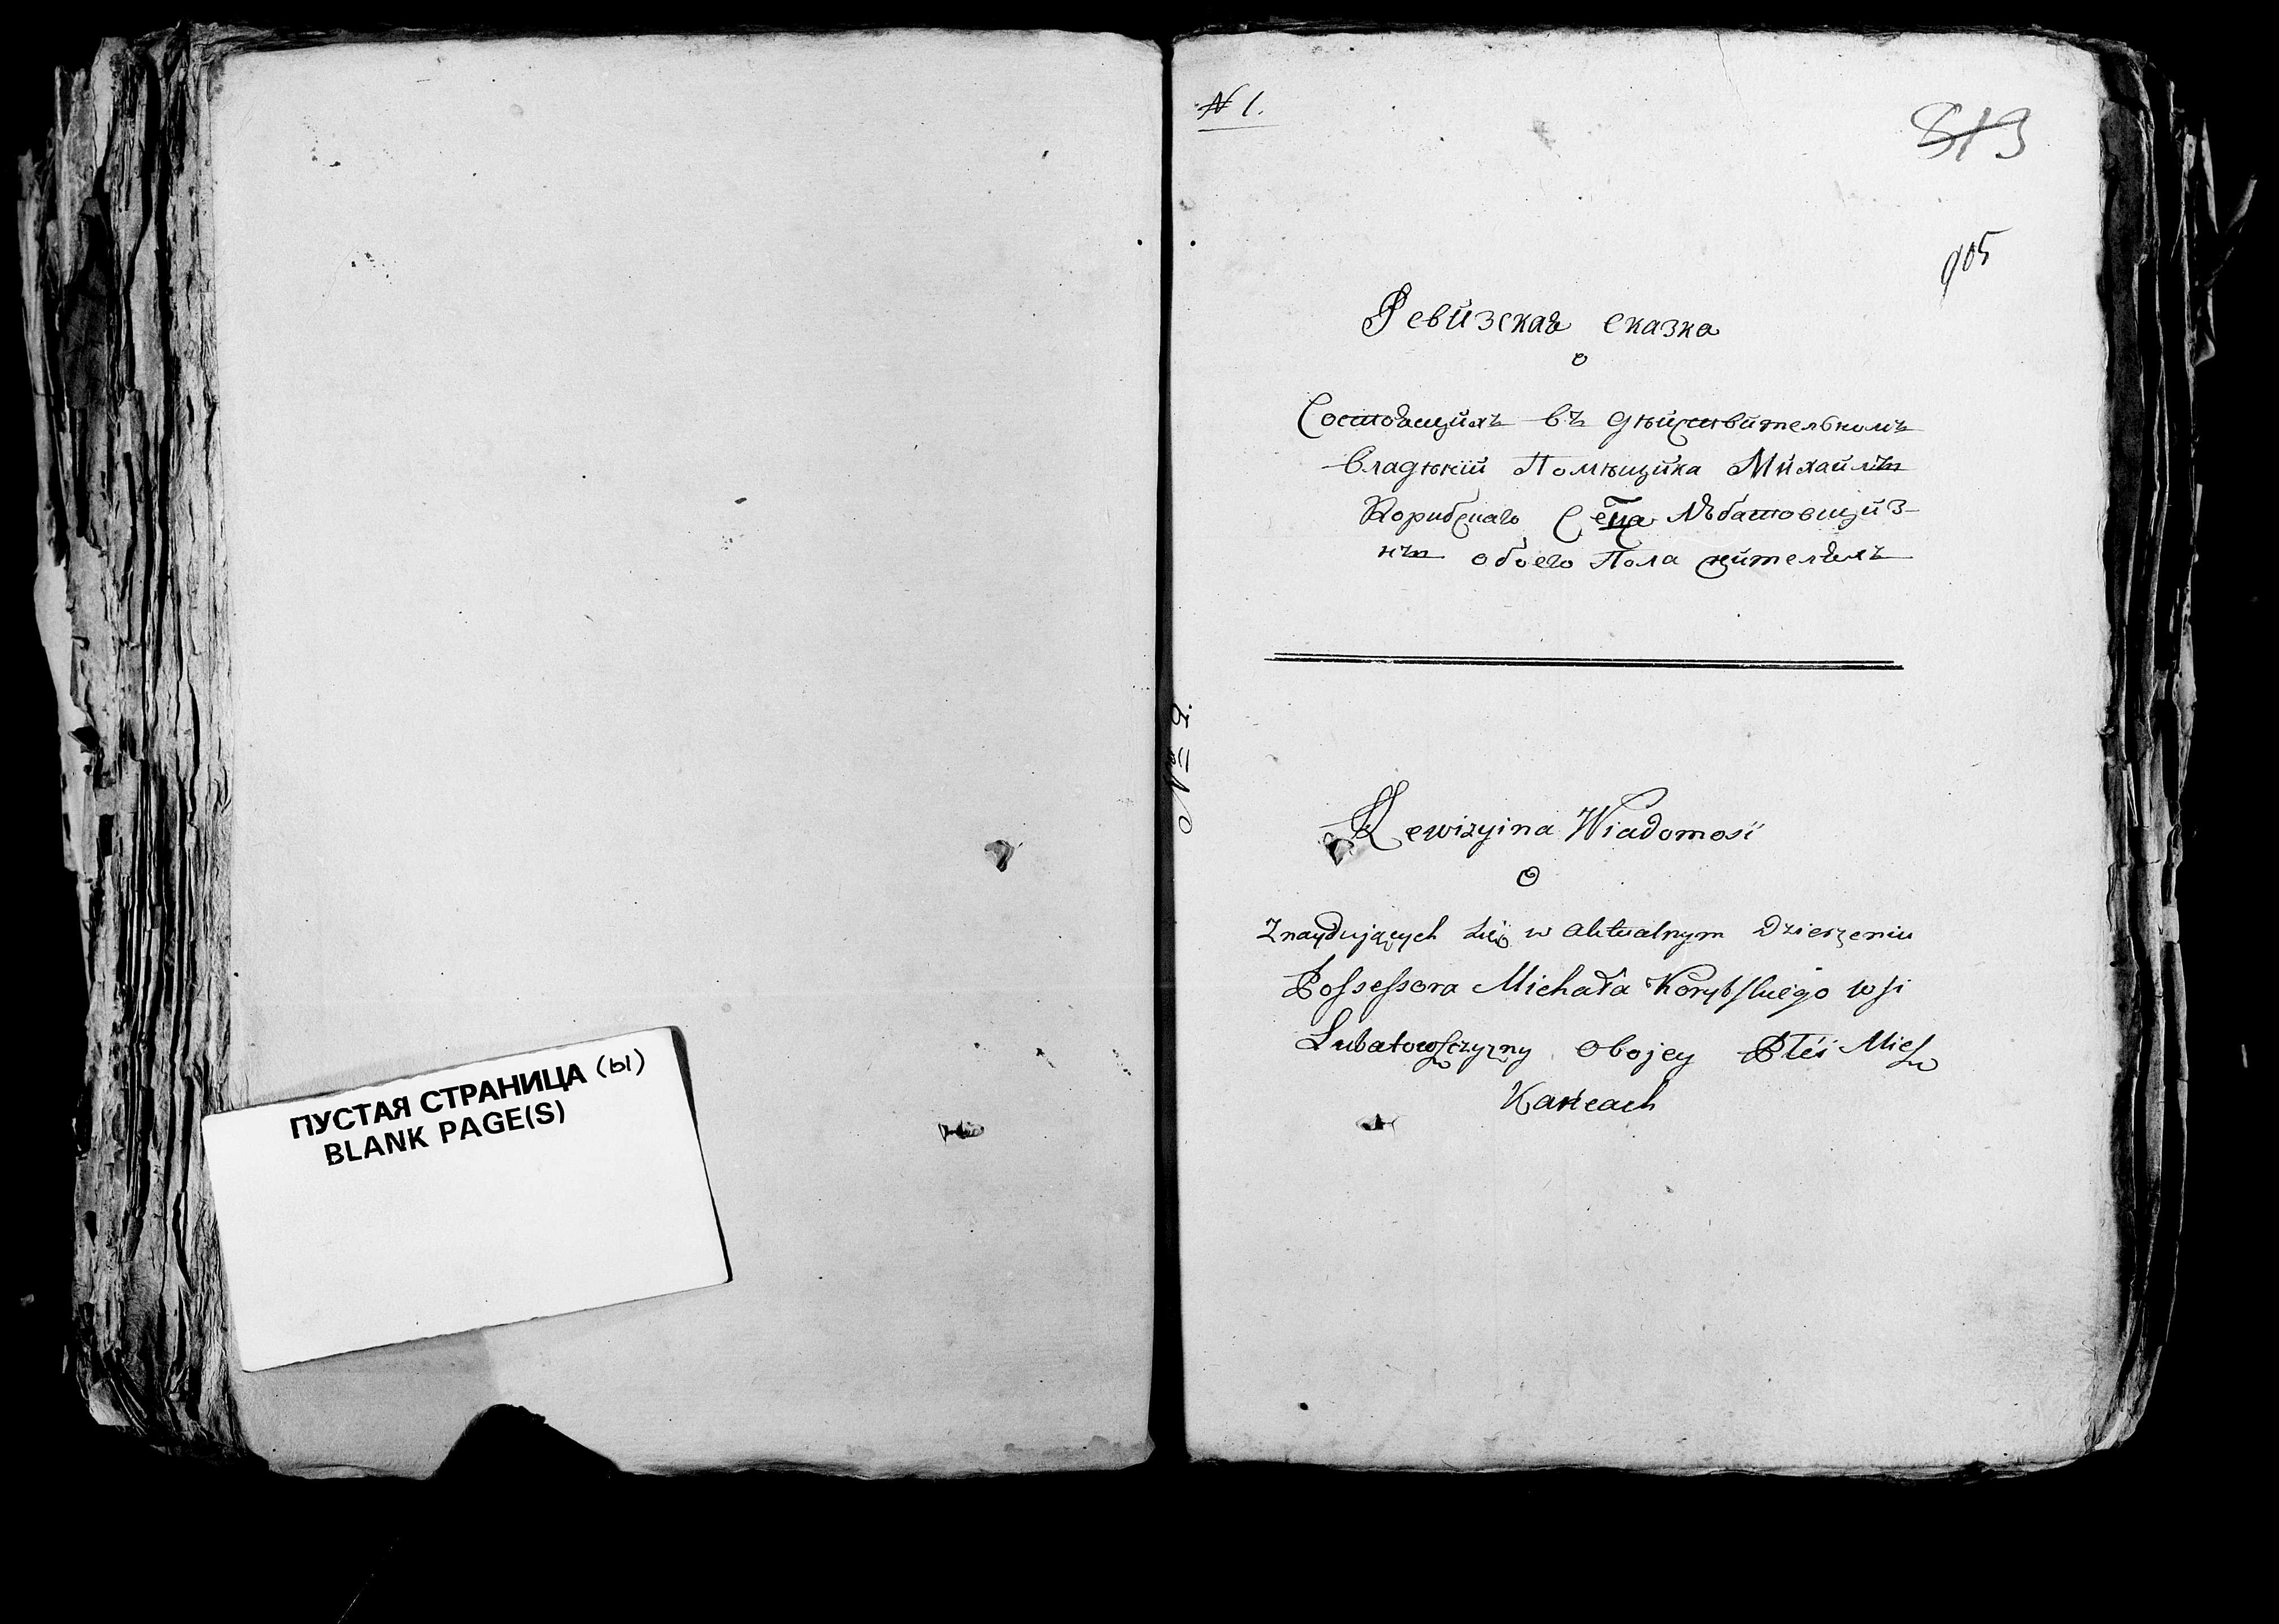 ПУСТАЯ СТРАНИЦА (Ы)
BLANK PAGE(S)
N 1.
813
905
Ревизская сказка
о
Состоящихъ въ дѣйствительномъ
владѣнiи Помѣщика Михайлы
Корибскаго Села Любатовщиз-
ны обоего Пола жителяхъ
N 2.
Rewizyina Wiadomość
O
Znayduiących się w aktualnym Dzierżeniu
Possessora Michała Korybskiego wsi
Lubatowszczyzny Obojey Płci Miesz
Kańcach